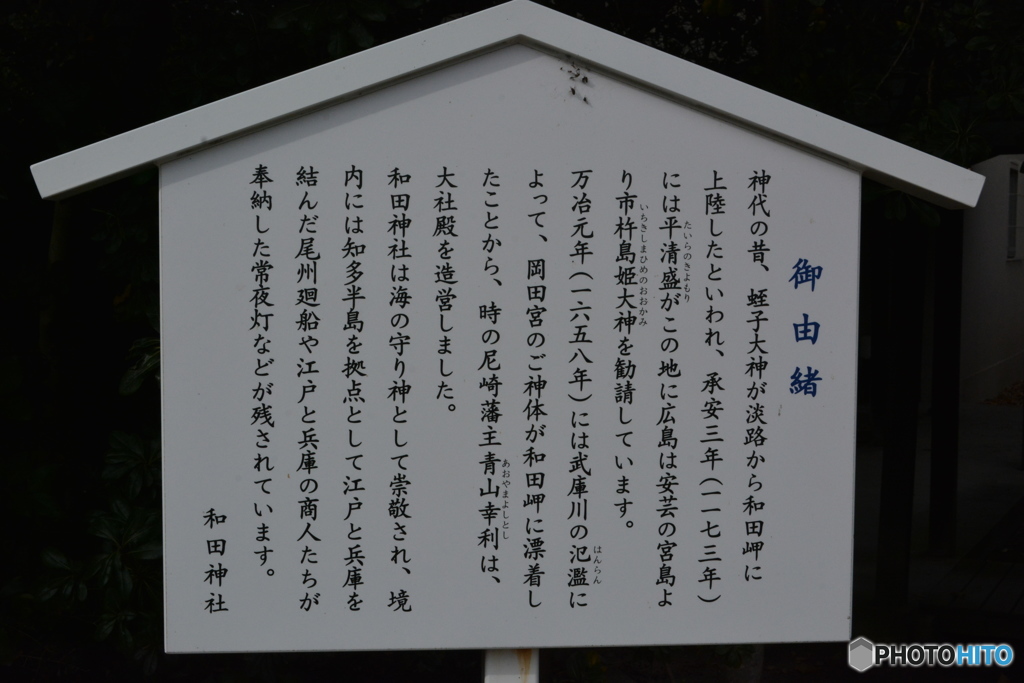 御由緒
神代の昔、蛭子大神が淡路から和田岬に
上陸したといわれ、承安三年(一一七三年)
には平清盛がこの地に広島は安芸の宮島よ
たいらのきよもり
り市杵島姫大神を勧請しています。
いちきしまひめのおおかみ
万治元年(一六五八年)には武庫川の氾濫に
はんらん
よって、岡田宮のご神体が和田岬に漂着し
たことから、時の尼崎藩主青山幸利は、
あおやまよしとし
大社殿を造営しました。
和田神社は海の守り神として崇敬され、境
内には知多半島を拠点として江戸と兵庫を
結んだ尾州廻船や江戸と兵庫の商人たちが
奉納した常夜灯などが残されています。
和田神社
PHOTOHITO